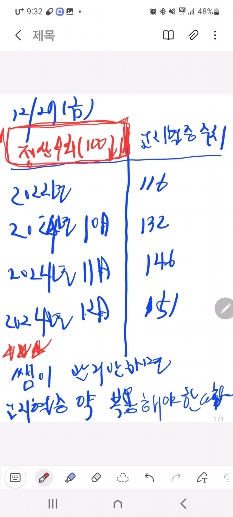 9:32
48%
제목
12/27(금)
정상수치(100↓)
고지혈증 수치
2022년 116
2024년 10月 132
2024년 11月 146
2024년 12月 151
쌤이 관리안하면
고지혈증 약 복용해야한다함
1/1